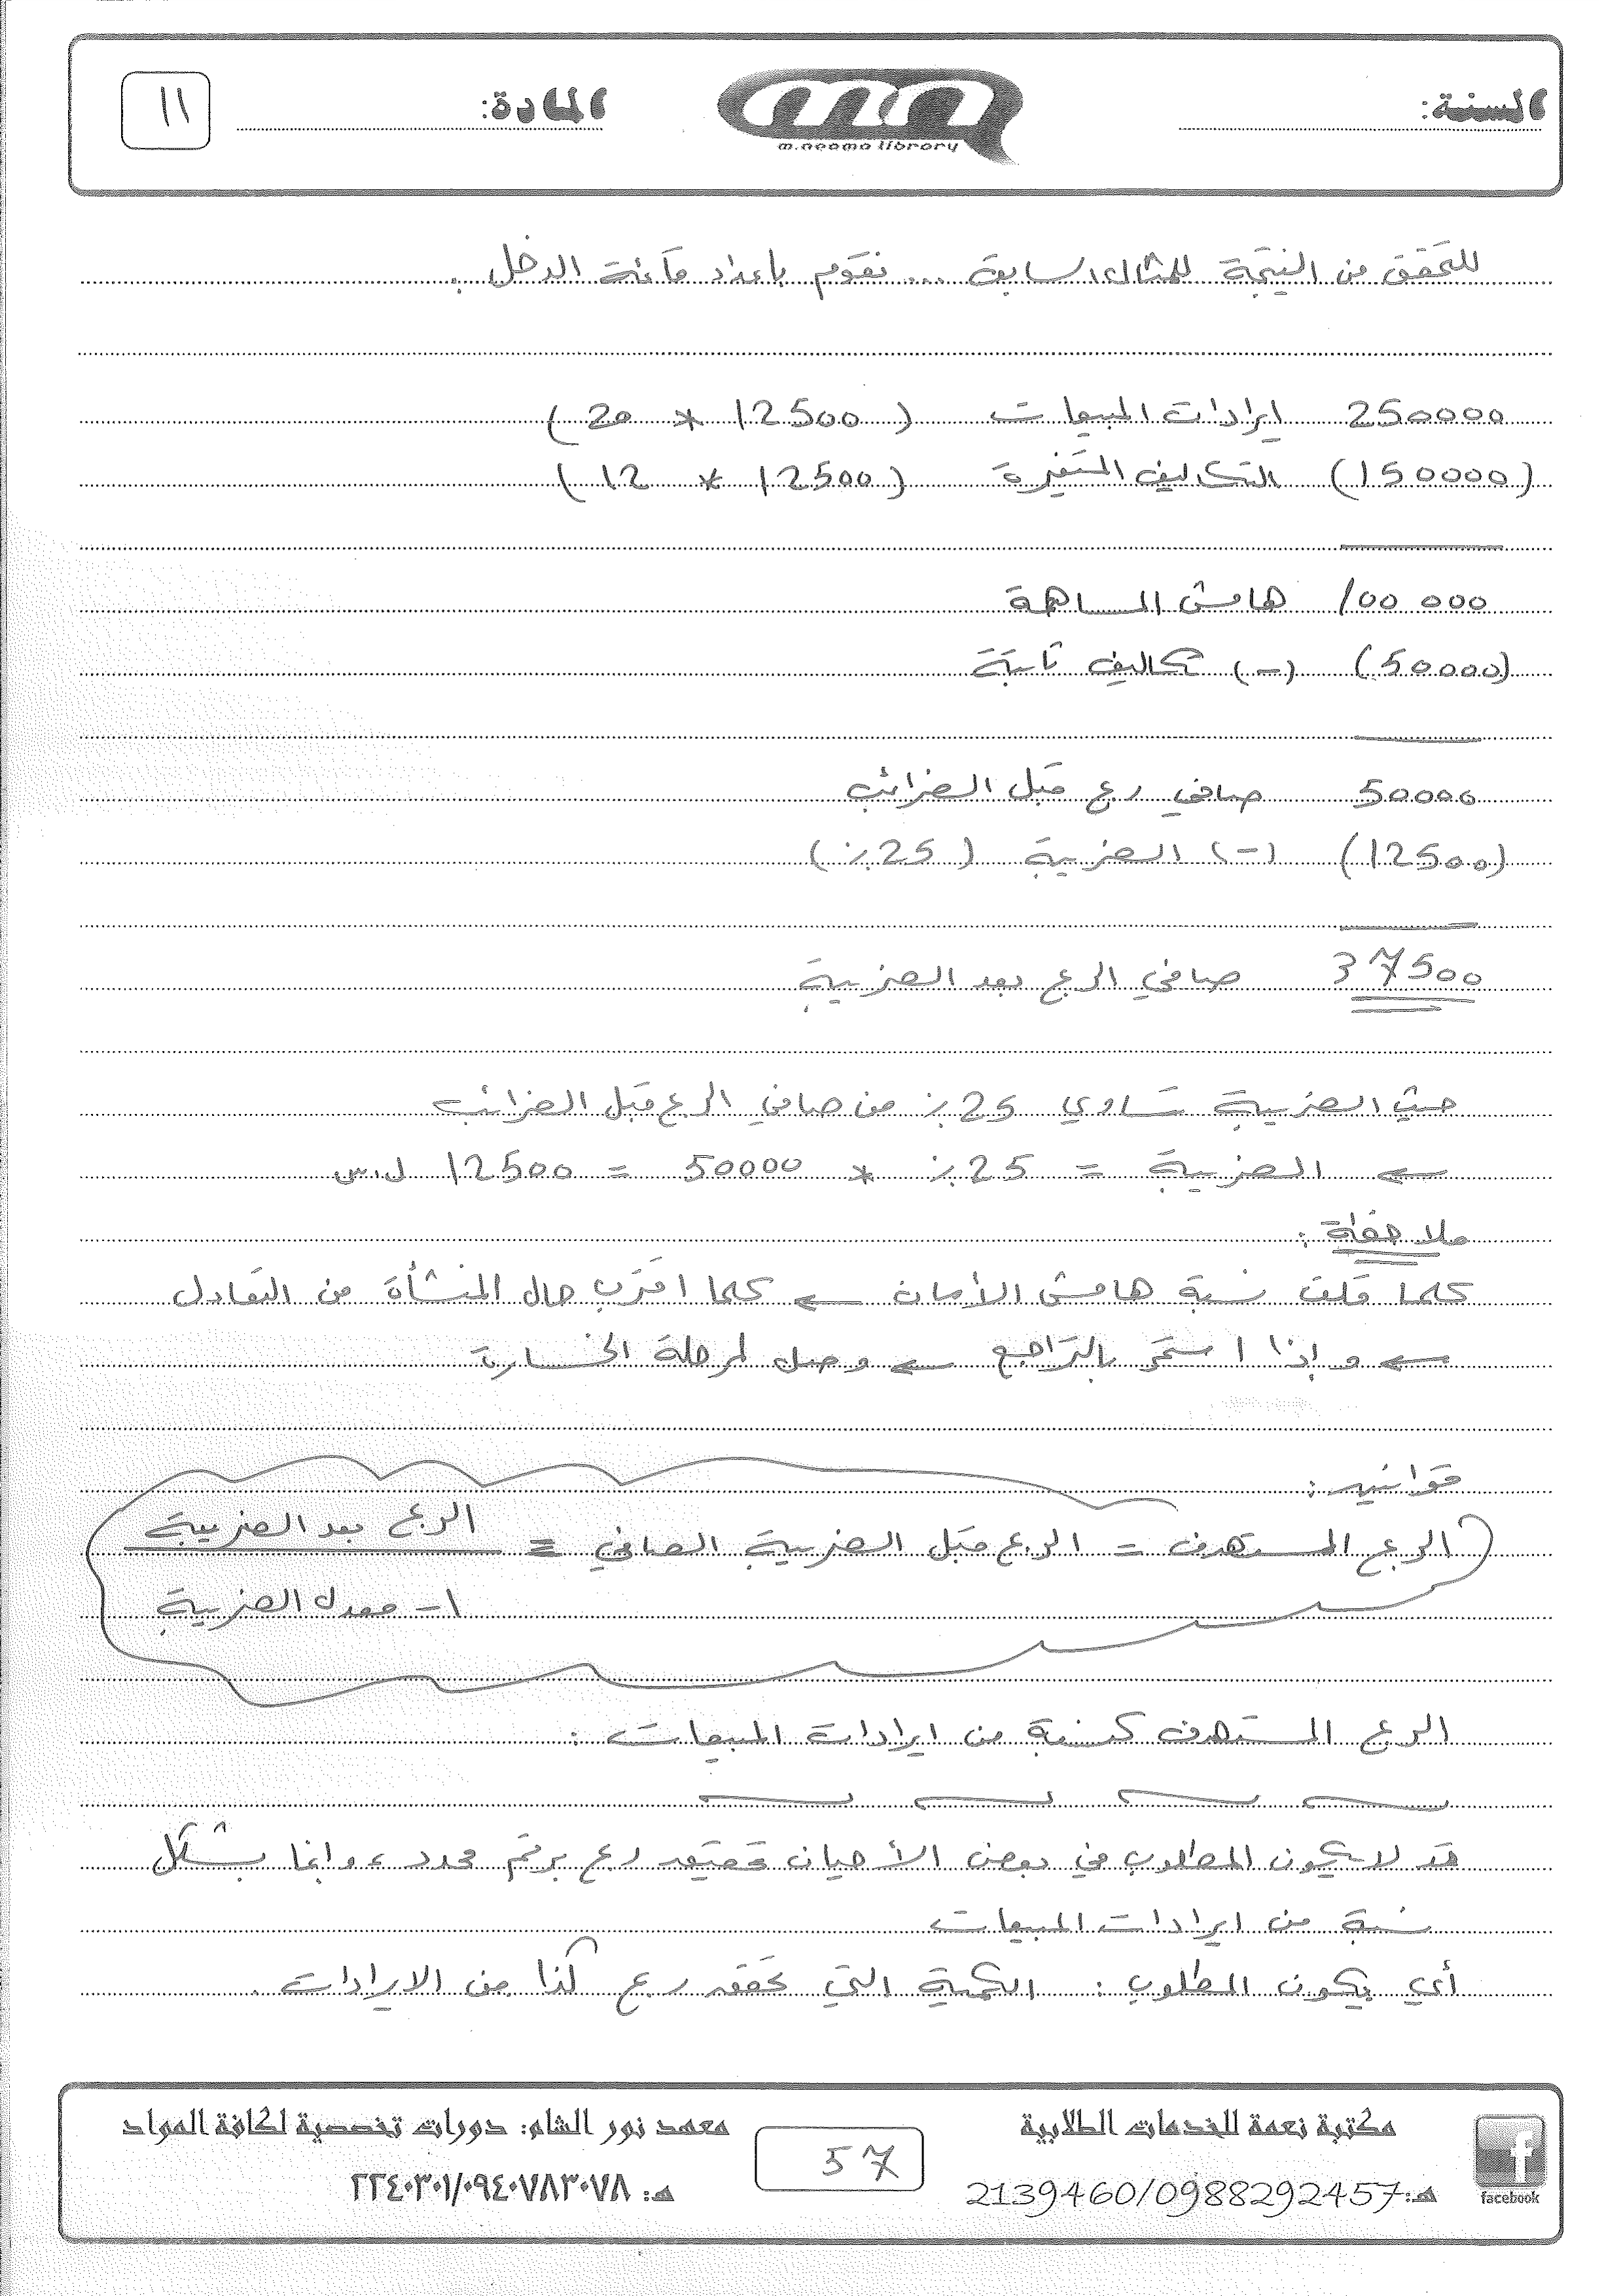 السنة:
m.neama library
المادة:
١١
للتحقق من النتيجة للمثال السابق ... نقوم باعداد قائمة الدخل .
250000 ايرادات المبيعات ( 12500 * 20 )
(150000) التكاليف المتغيرة ( 12500 * 12 )
100 000 هامش المساهمة
(50000) (-) تكاليف ثابتة
50000 صافي ربح قبل الضرائب
(12500) (-) الضريبة ( 25٪ )
37500 صافي الربح بعد الضريبة
حيث الضريبة تساوي 25٪ من صافي الربح قبل الضرائب
← الضريبة = 25٪ * 50000 = 12500 ل.س
ملاحظة :
كلما قلت نسبة هامش الأمان ← كلما اقترب حال المنشأة من التعادل
← و إذا استمر بالتراجع ← وصل لمرحلة الخسارة
قوانين :
الربح المستهدف = الربح قبل الضريبة الصافي = الربح بعد الضريبة
١ - معدل الضريبة
الربح المستهدف كنسبة من ايرادات المبيعات :
قد لا يكون المطلوب في بعض الأحيان تحقيق ربح برقم محدد ، وانما بشكل
نسبة من ايرادات المبيعات
أي يكون المطلوب : الكمية التي تحقق ربح كذا من الايرادات .
مكتبة نعمة للخدمات الطلابية
هـ: 2139460/0988292457
facebook
57
معهد نور الشام: دورات تخصصية لكافة المواد
هـ: ٢٢٤٠٣٠١/٠٩٤٠٧٨٣٠٧٨